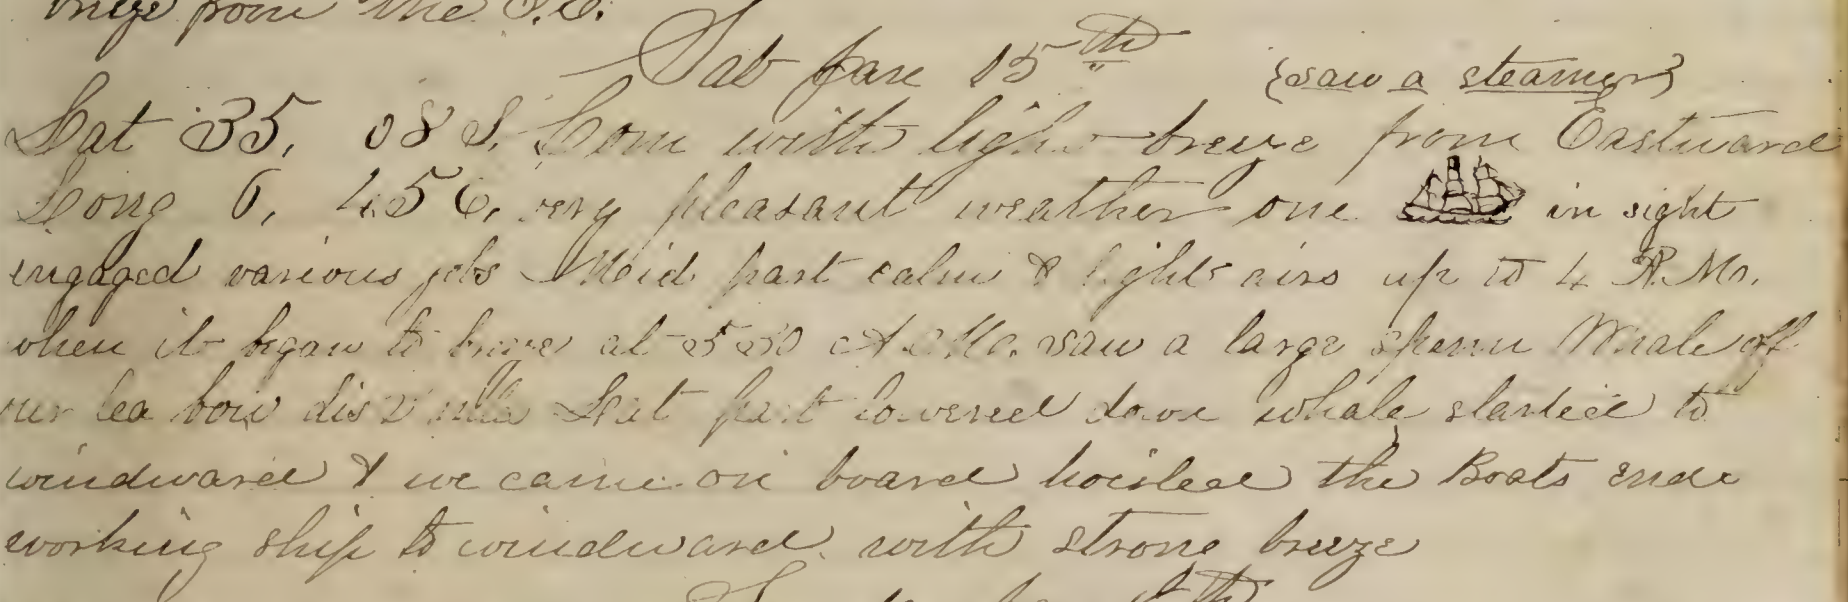 breeze from the S.E.
Sat Jan 15th {saw a steamer}
Lat 35, 08 S. Com with light breeze from Eastward
Long 6, 45 E, very pleasant weather one in sight
engaged various jobs Mid part calm & light airs up to 4 P.M.
when it began to breeze at 5 30 A.M. saw a large sperm Whale off
our lea bow dis 2 mile Lat part lowered down whale started to
windward & we came on board hoisted the Boats ende
working ship to windward with strong breeze